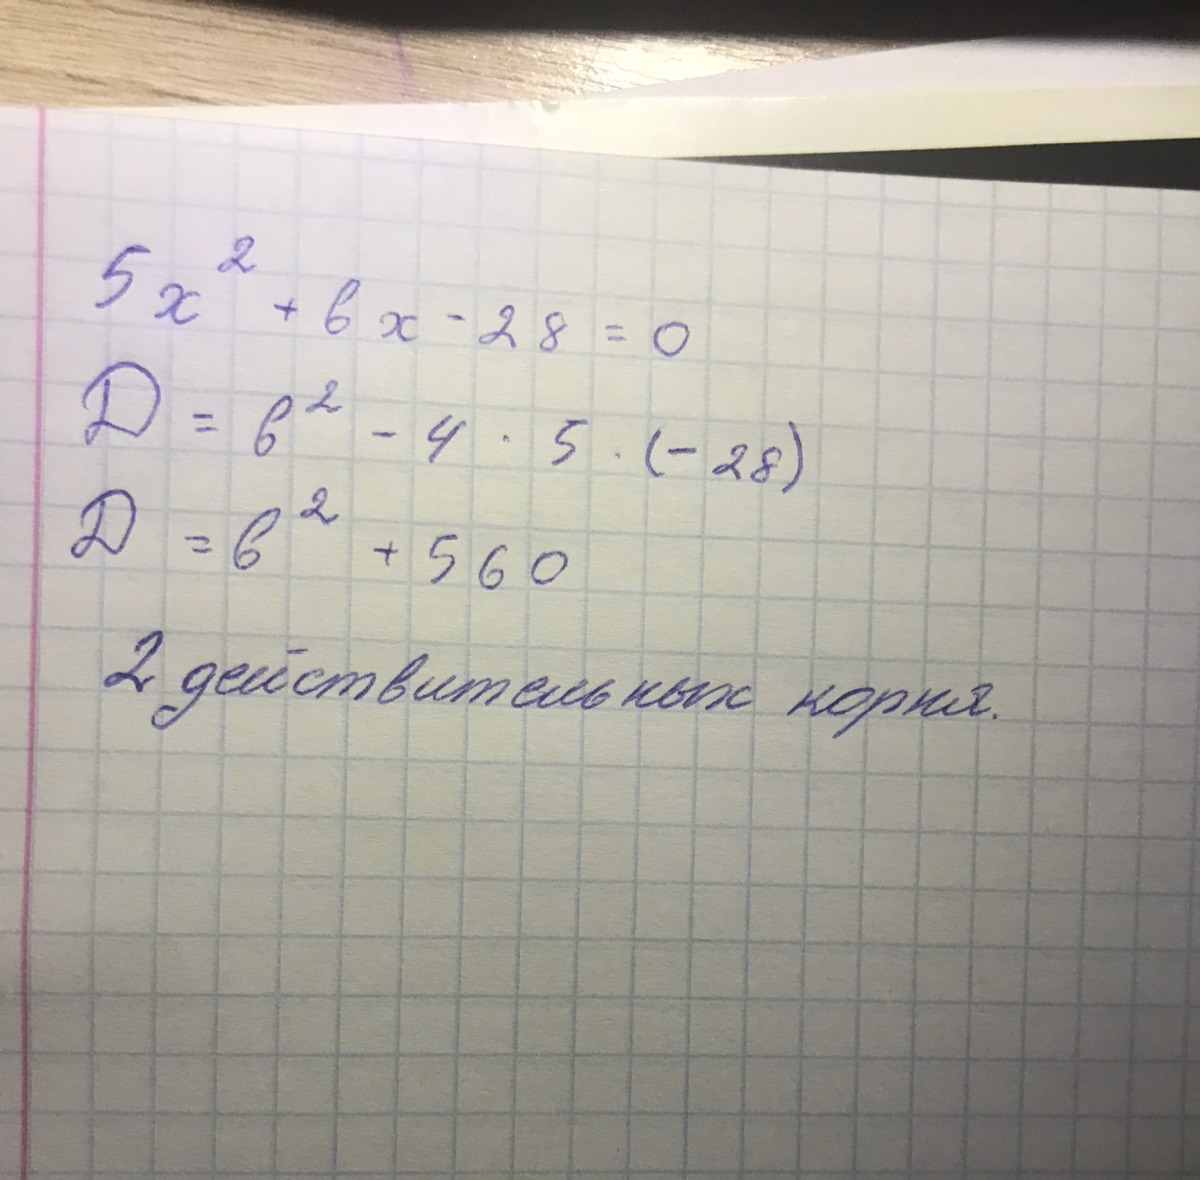 5x² + bx - 28 = 0
D = b² - 4 · 5 · (-28)
D = b² + 560
2 действительных корня.